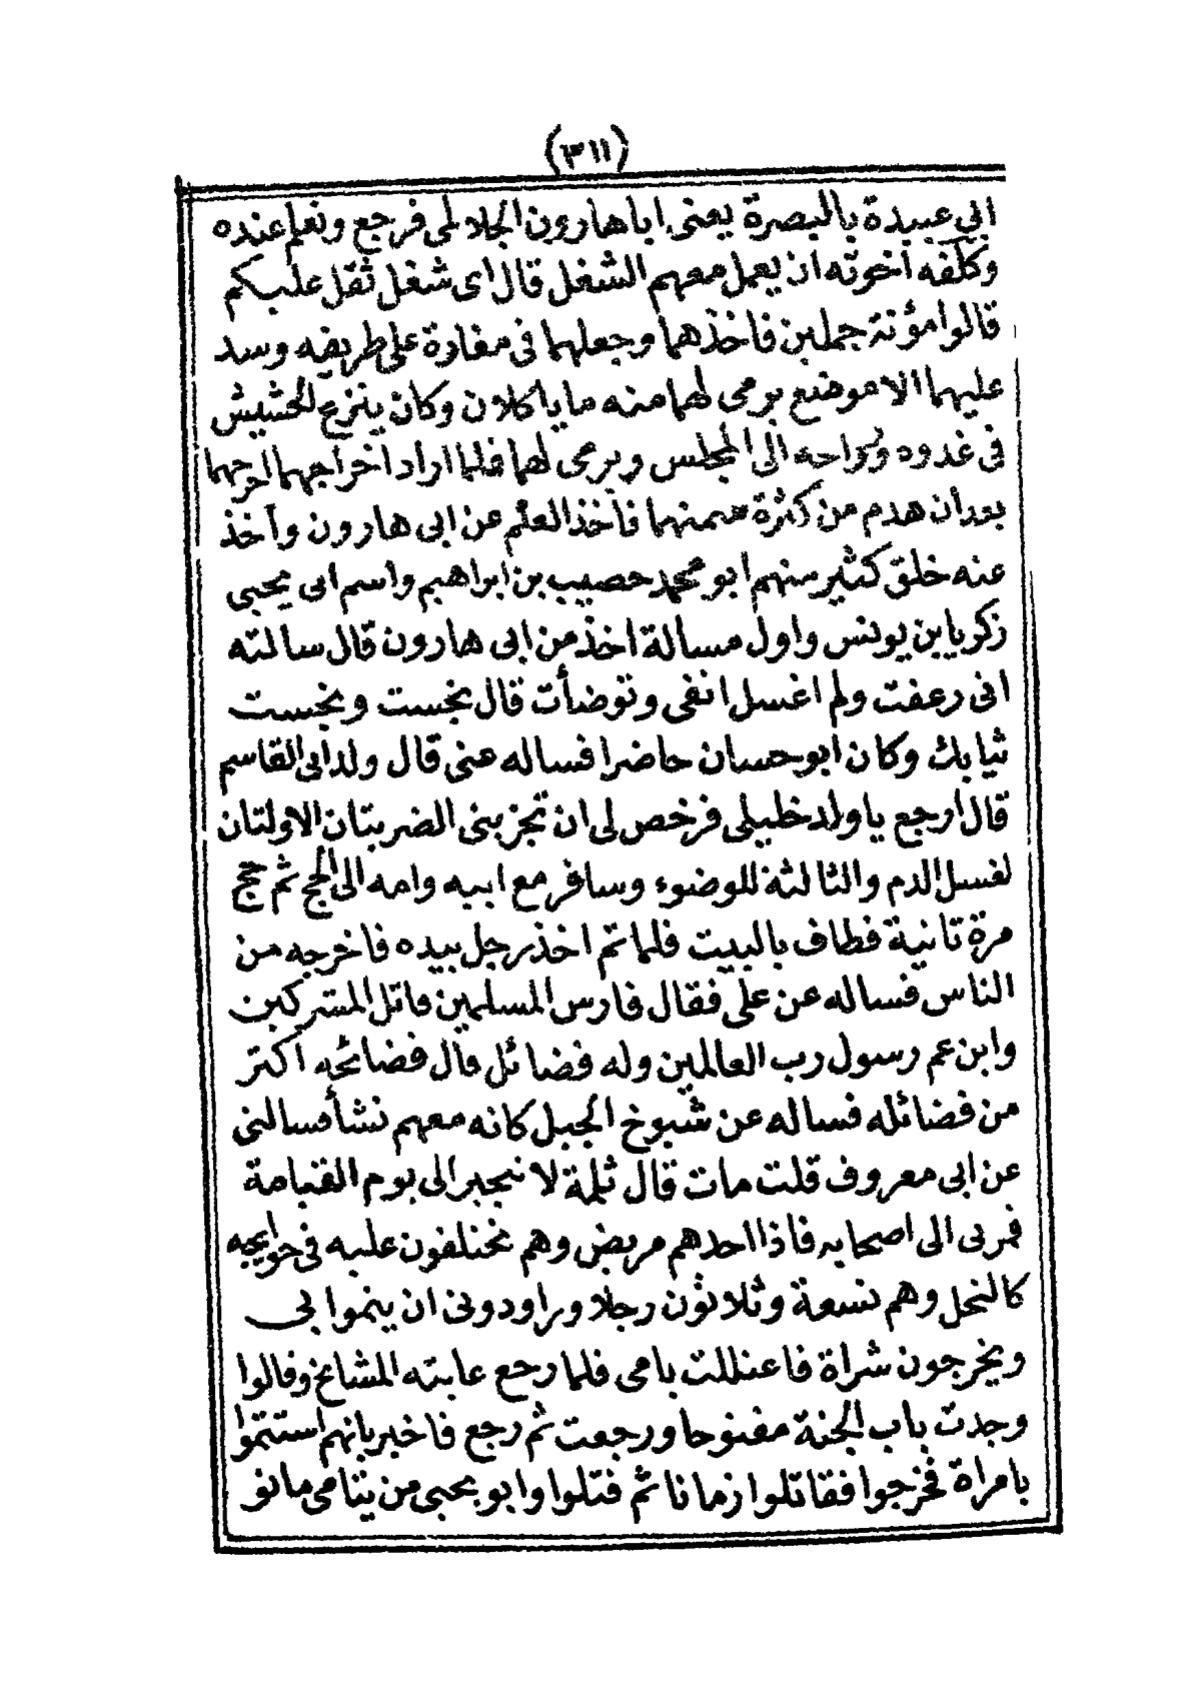 (٣١١)
ابي عبيدة بالبصرة يعنى ابا هارون الجلالمى فرجع وتعلم عنده
وكلفه اخوته ان يعمل معهم الشغل قال اى شغل ثقل عليكم
قالوا مؤنة جملين فاخذهما وجعلهما فى مغارة على طريقه وسد
عليهما الا موضع يرمى لهما منه ما ياكلان وكان ينزع الحشيش
فى غدوه ورواحه الى المجلس ويرمى لهما فلما اراد اخراجهما اخرجهما
بعد ان هدم من كثرة سمنهما فأخذ العلم عن ابى هارون وأخذ
عنه خلق كثير منهم ابو محمد خصيب بن ابراهيم واسم ابى يحيى
زكريا بن يونس واول مسالة اخذ من ابى هارون قال سالته
انى رعفت ولم اغسل انفى وتوضأت قال نجست ونجست
ثيابك وكان ابو حسان حاضرا فساله عنى قال ولد ابى القاسم
قال ارجع يا ولد خليلى فرخص لى ان تجزينى الضربتان الاولتان
لغسل الدم والثالثة للوضوء وسافر مع ابيه وامه الى الحج ثم حج
مرة ثانية فطاف بالبيت فلما تم اخذ رجل بيده فاخرجه من
الناس فساله عن على فقال فارس المسلمين قاتل المشركين
وابن عم رسول رب العالمين وله فضائل قال فضائحه اكثر
من فضائله فساله عن شيوخ الجبل كانه معهم نشأ فسالنى
عن ابى معروف قلت مات قال ثلمة لا تنجبر الى يوم القيامة
فمر بى الى اصحابه فاذا احدهم مريض وهم يختلفون عليه فى حوايجه
كالنحل وهم تسعة وثلاثون رجلا وراودونى ان يتموا بى
ويخرجون شراة فاعتللت بامى فلما رجع عابته المشايخ وقالوا
وجدت باب الجنة مفتوحا ورجعت ثم رجع فاخبر بانهم استتموا
بامراة فخرجوا فقاتلوا زمانا ثم قتلوا وابو يحيى من يتامى ماتو